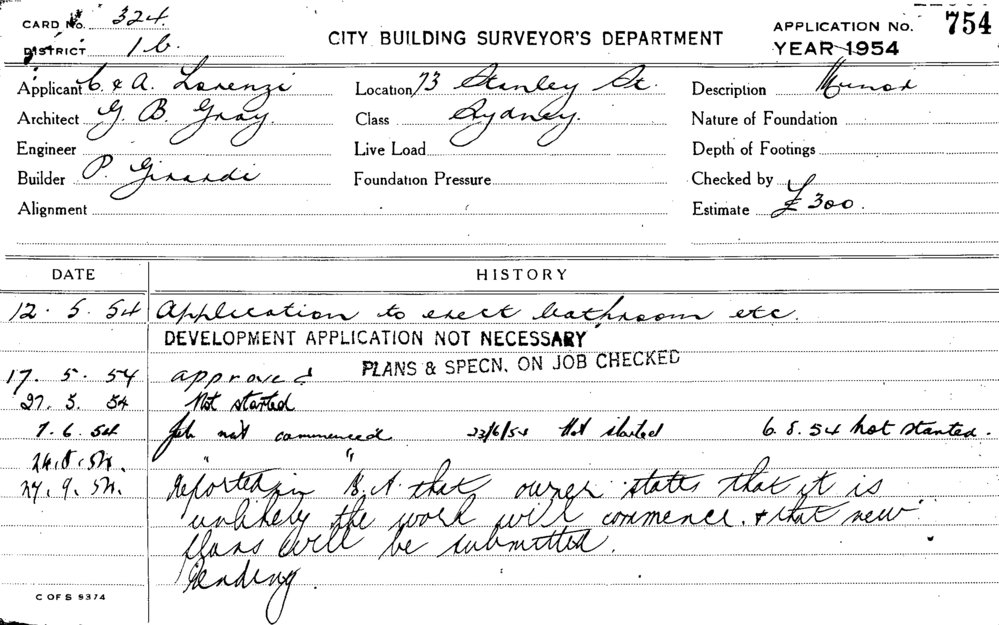 CARD No. 324.
DISTRICT 1b.
CITY BUILDING SURVEYOR'S DEPARTMENT
APPLICATION No. 754
YEAR 1954
Applicant C. & A. Lorenzi
Location 73 Stanley St.
Description Minor
Architect G. B. Gray.
Class Sydney.
Nature of Foundation
Engineer
Live Load
Depth of Footings
Builder P. Girardi
Foundation Pressure
Checked by
Alignment
Estimate £300.
DATE HISTORY
12. 5. 54 Application to erect bathroom etc.
DEVELOPMENT APPLICATION NOT NECESSARY
PLANS & SPECN. ON JOB CHECKED
17. 5. 54 approved
27. 5. 54 Not started
7. 6. 54 Job not commenced 23/6/54 Not started 6. 8. 54 not started.
24. 8. 54. " "
27. 9. 54. Reported in B.A. that owner states that it is
unlikely the work will commence. & that new
plans will be submitted.
Pending.
C OF S 9374